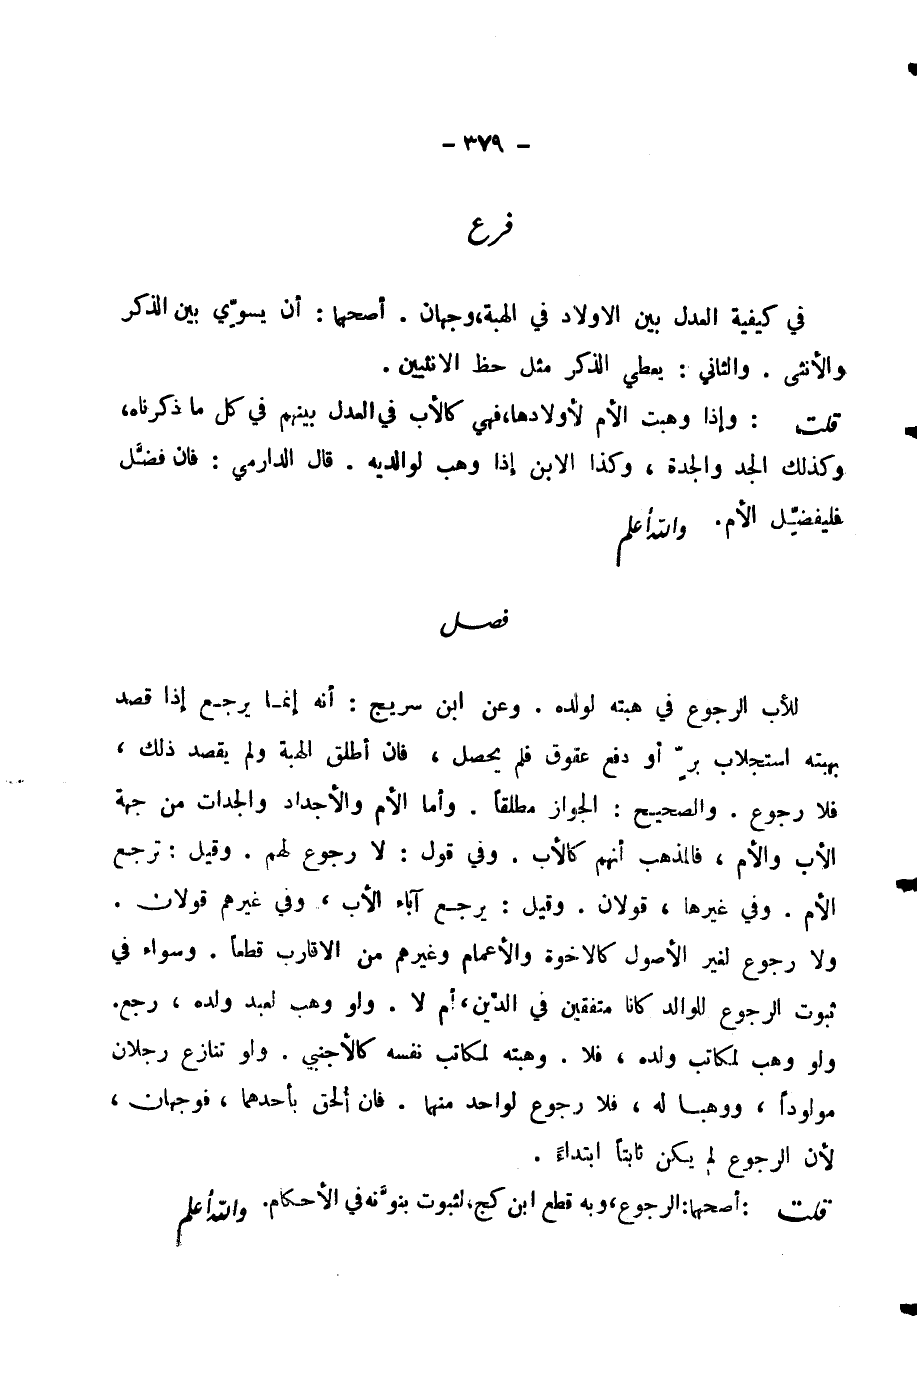 - ٣٧٩ -
فرع
في كيفية العدل بين الاولاد في الهبة، وجهان . أصحها : أن يسوِّي بين الذكر
والأنثى . والثاني : يعطي الذكر مثل حظ الانثيين .
قلت : وإذا وهبت الأم لأولادها، فهي كالأب في العدل بينهم في كل ما ذكرناه،
وكذلك الجد والجدة ، وكذا الابن إذا وهب لوالديه . قال الدارمي : فان فضَّل
فليفضِّل الأم. والله أعلم
فصل
للأب الرجوع في هبته لولده . وعن ابن سريج : أنه إنما يرجع إذا قصد
بهبته استجلاب برٍّ أو دفع عقوق فلم يحصل ، فان أطلق الهبة ولم يقصد ذلك ،
فلا رجوع . والصحيح : الجواز مطلقاً . وأما الأم والأجداد والجدات من جهة
الأب والأم ، فالمذهب أنهم كالأب . وفي قول : لا رجوع لهم . وقيل : ترجع
الأم . وفي غيرها ، قولان . وقيل : يرجع آباء الأب ، وفي غيرهم قولان .
ولا رجوع لغير الأصول كالاخوة والأعمام وغيرهم من الاقارب قطعاً . وسواء في
ثبوت الرجوع للوالد كانا متفقين في الدِّين، أم لا . ولو وهب لعبد ولده ، رجع.
ولو وهب لمكاتب ولده ، فلا . وهبته لمكاتب نفسه كالأجنبي . ولو تنازع رجلان
مولوداً ، ووهبا له ، فلا رجوع لواحد منها . فان أُلحق بأحدهما ، فوجهان ،
لأن الرجوع لم يكن ثابتاً ابتداءً .
قلت : أصحها: الرجوع، وبه قطع ابن كج، لثبوت بنوَّته في الأحكام. والله أعلم